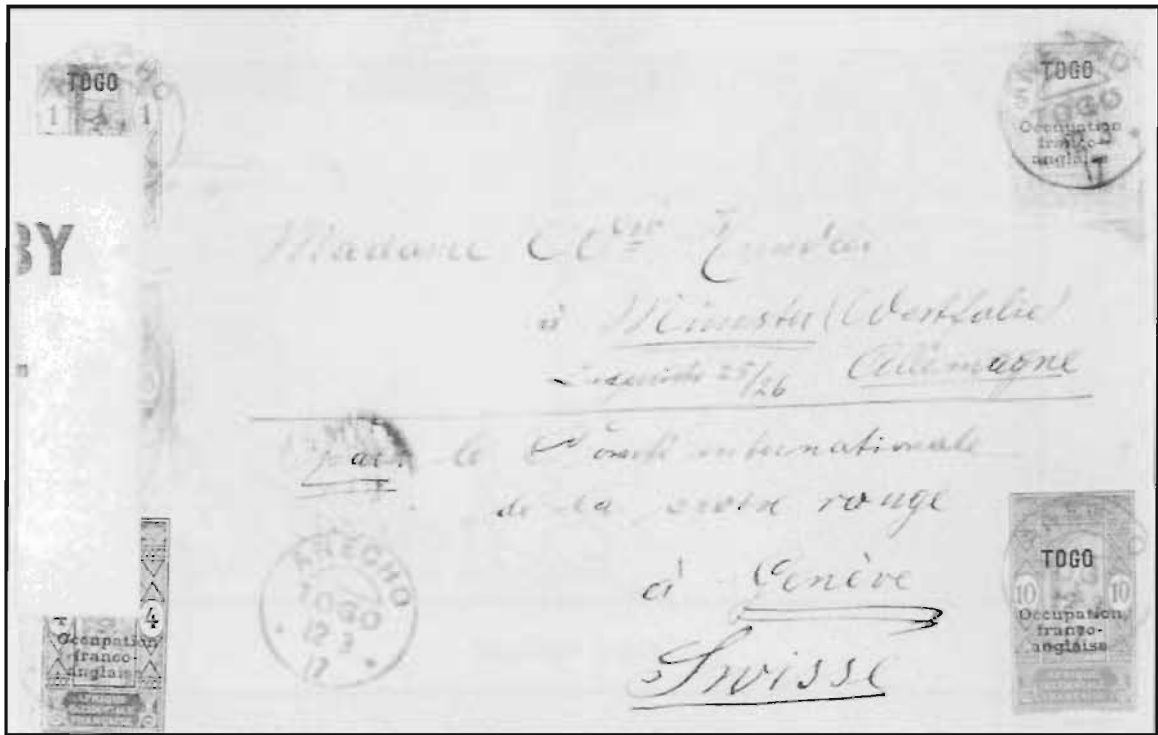 TOGO
1 1
BY
TOGO
Occupation
franco-
anglaise
ANECHO
TOGO
12 3
17
Madame
à Münster (Westfalie)
25/26 Allemagne
par le Comité internationale
de la croix rouge
à Genève
Suisse
ANECHO
TOGO
12 3
17
4
Occupation
franco-
anglaise
AFRIQUE
OCCIDENTALE
FRANÇAISE
TOGO
10 10
Occupation
franco-
anglaise